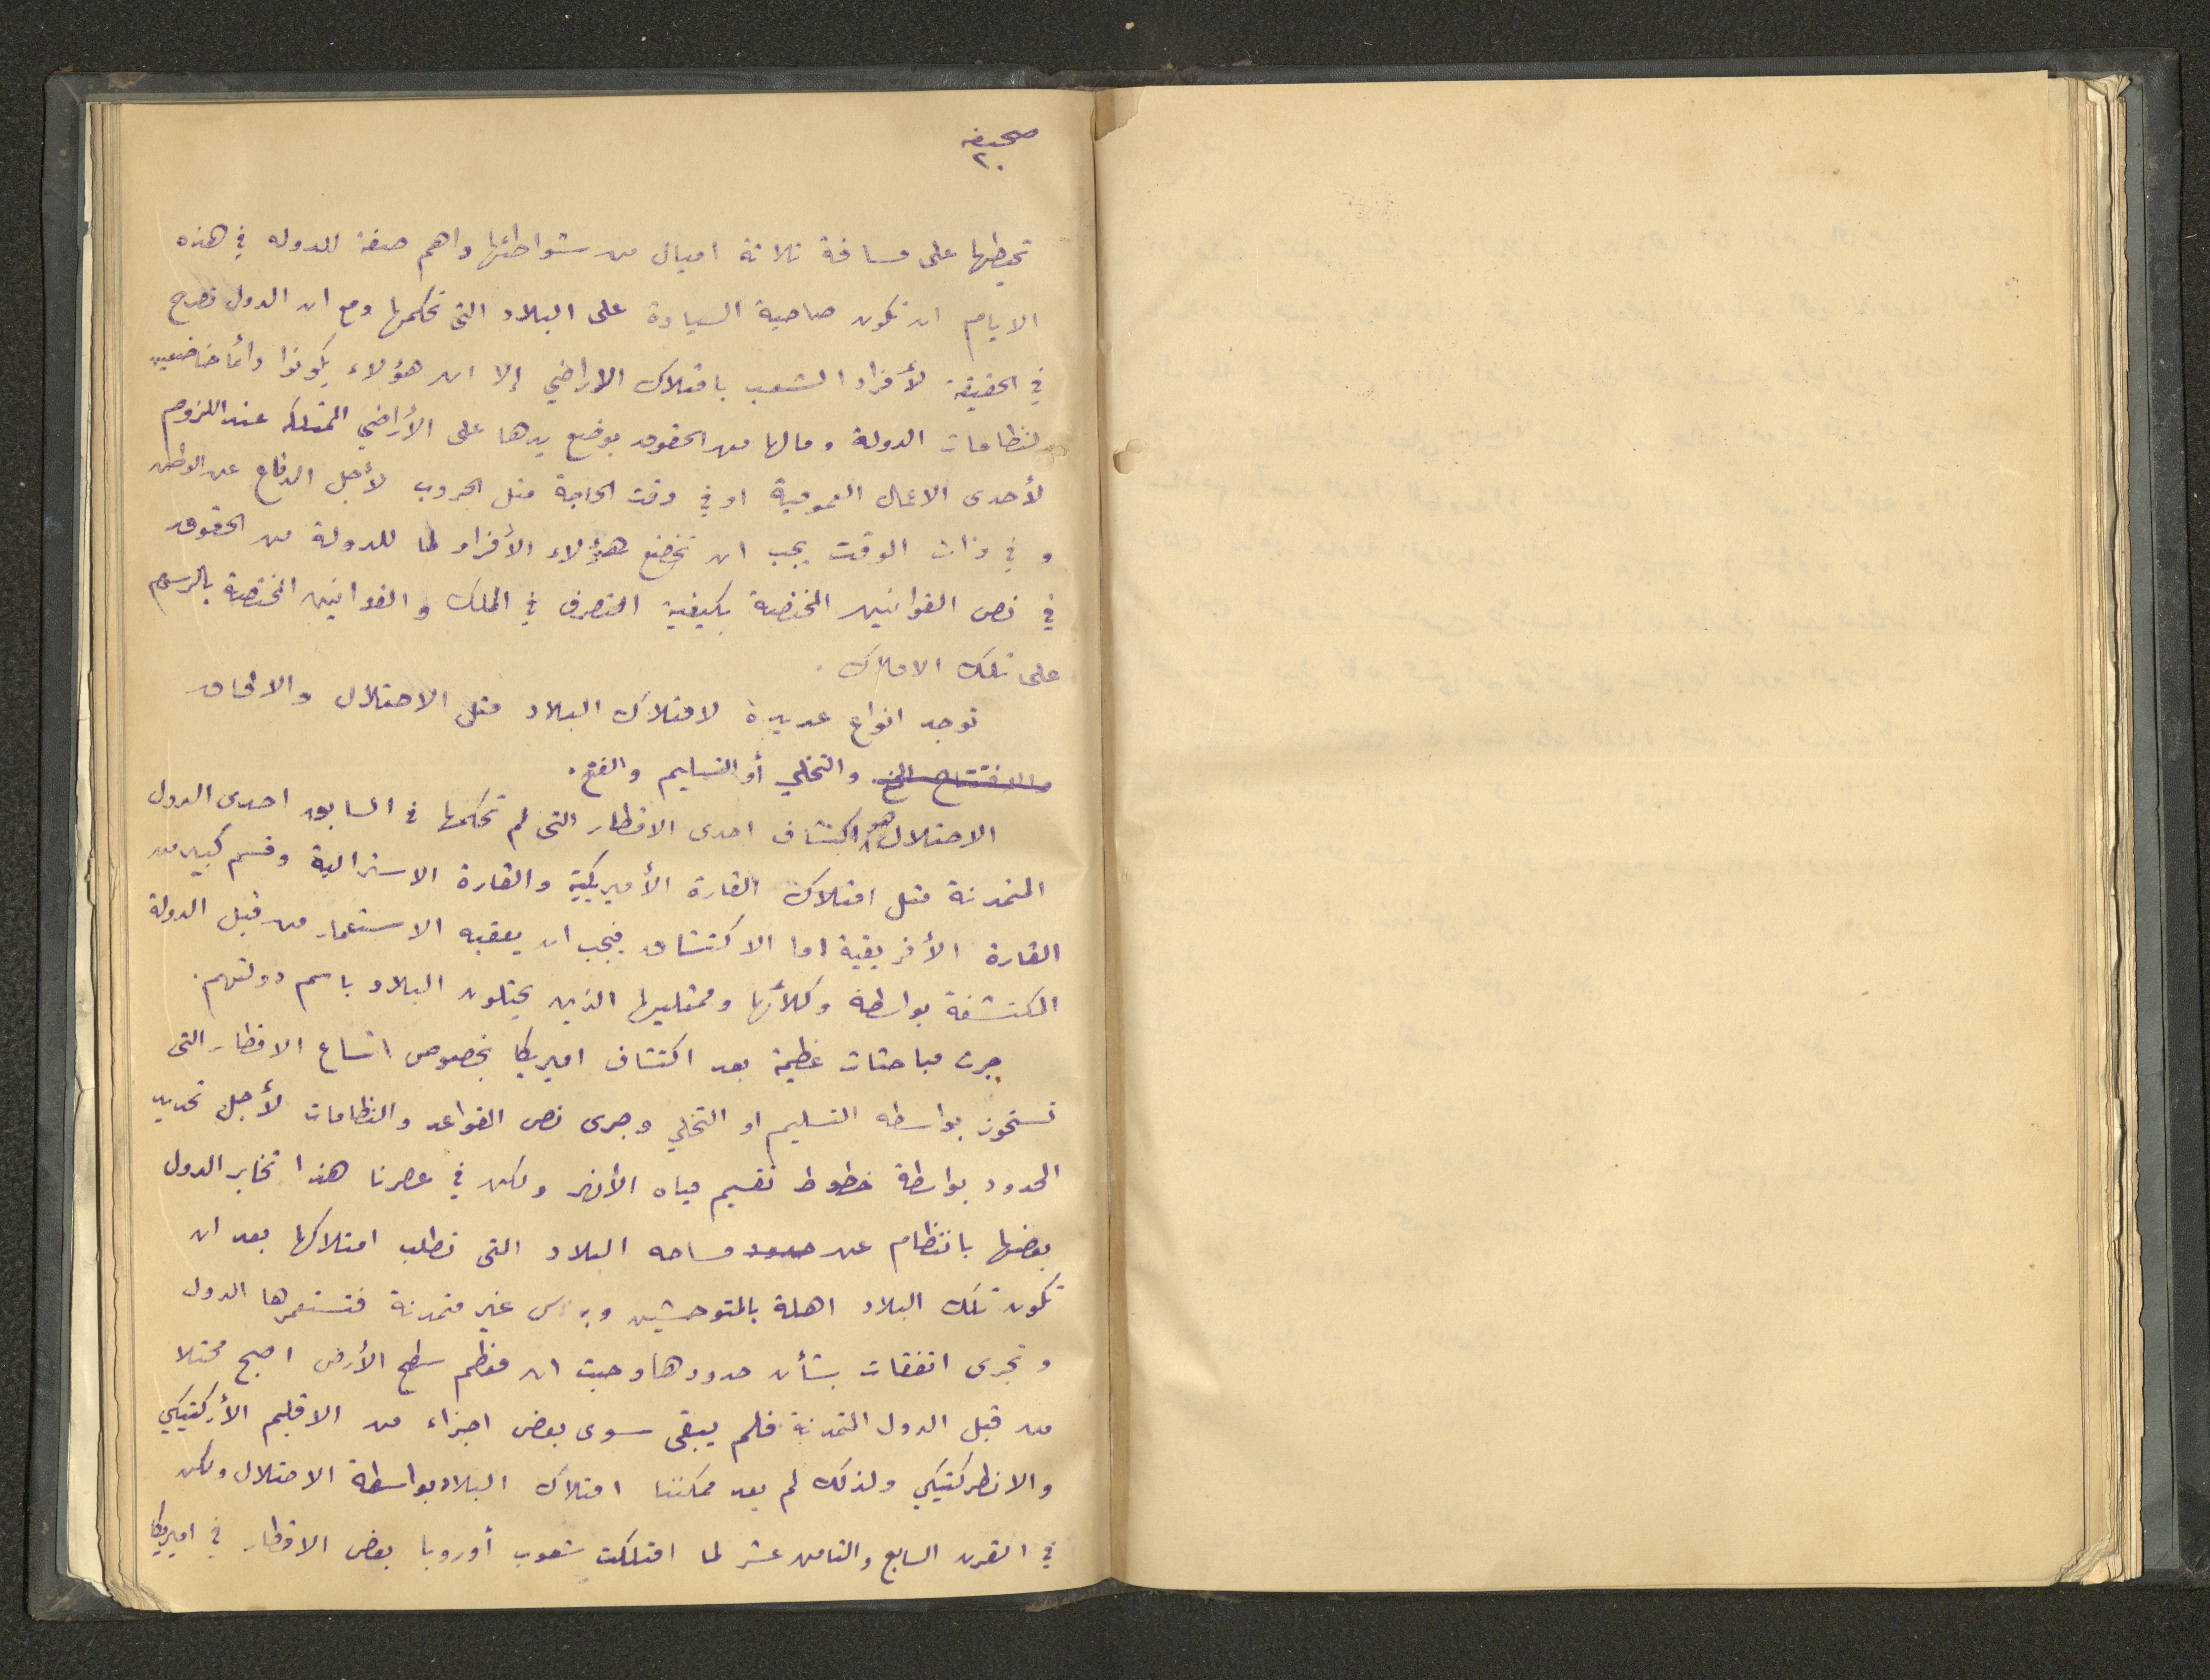 صحيفه
٢٠
تحيطها على مسافة ثلاثة اميال من شواطئها واهم صفة للدوله في هذه
الايام ان تكون صاحبة السيادة على البلاد التى تحكمها ومع ان الدول تصرح
في الحقيقة لأفراد الشعب بامتلاك الاراضي إلا ان هؤلاء يكونوا دائما خاضعين
لنظامات الدولة ومالها من الحقوق بوضع يدها على الأراضي الممتلكه عند اللزوم
لأحدى الاعمال العمومية او في وقت الحاجة مثل الحروب لأجل الدفاع عن الوطن
و في ذات الوقت يجب ان تخضع هؤلاء الأفراد لما للدولة من الحقوق
في نص القوانين المختصة بكيفية التصرف في الملك و القوانين المختصة بالرسوم
على تلك الاملاك .
توجد انواع عديدة لامتلاك البلاد مثل الاحتلال والالحاق
والافتتاح الخ والتخلي أو التسليم والفتح .
الاحتلال هو اكتشاف احدى الاقطار التى لم تحكمها في السابق احدى الدول
المتمدنة مثل امتلاك القارة الأميريكية والقارة الاسترالية وقسم كبير من
القارة الأفريقية اما الاكتشاف فيجب ان يعقبه الاستعمار من قبل الدولة
المكتشفة بواسطة وكلأئها وممثليها الذين يحتلون البلاد باسم دولتهم .
جرت مباحثات عظيمة بعد اكتشاف اميريكا بخصوص اتساع الاقطار التى
تستحوذ بواسطه التسليم او التخلي وجرى نص القواعد والنظامات لأجل تحديد
الحدود بواسطة خطوط تقسيم مياه الأنهر ولكن في عصرنا هذا تخابر الدول
بعضها بانتظام عن حدود مساحه البلاد التى تطلب امتلاكها بعد ان
تكون تلك البلاد اهلة بالمتوحشين غير متمدنة فتستعمرها الدول
وتجرى اتفقات بشأن حدودها وحيث ان معظم سطح الأرض اصبح محتلا
من قبل الدول المتمدنة فلم يبقى سوى بعض اجزاء من الاقليم الأركتيكي
والانطركتيكي ولذلك لم يعد ممكننا امتلاك البلاد بواسطة الاحتلال ولكن
في القرن السابع والثامن عشر لما امتلكت شعوب أوروبا بعض الاقطار في اميريكا